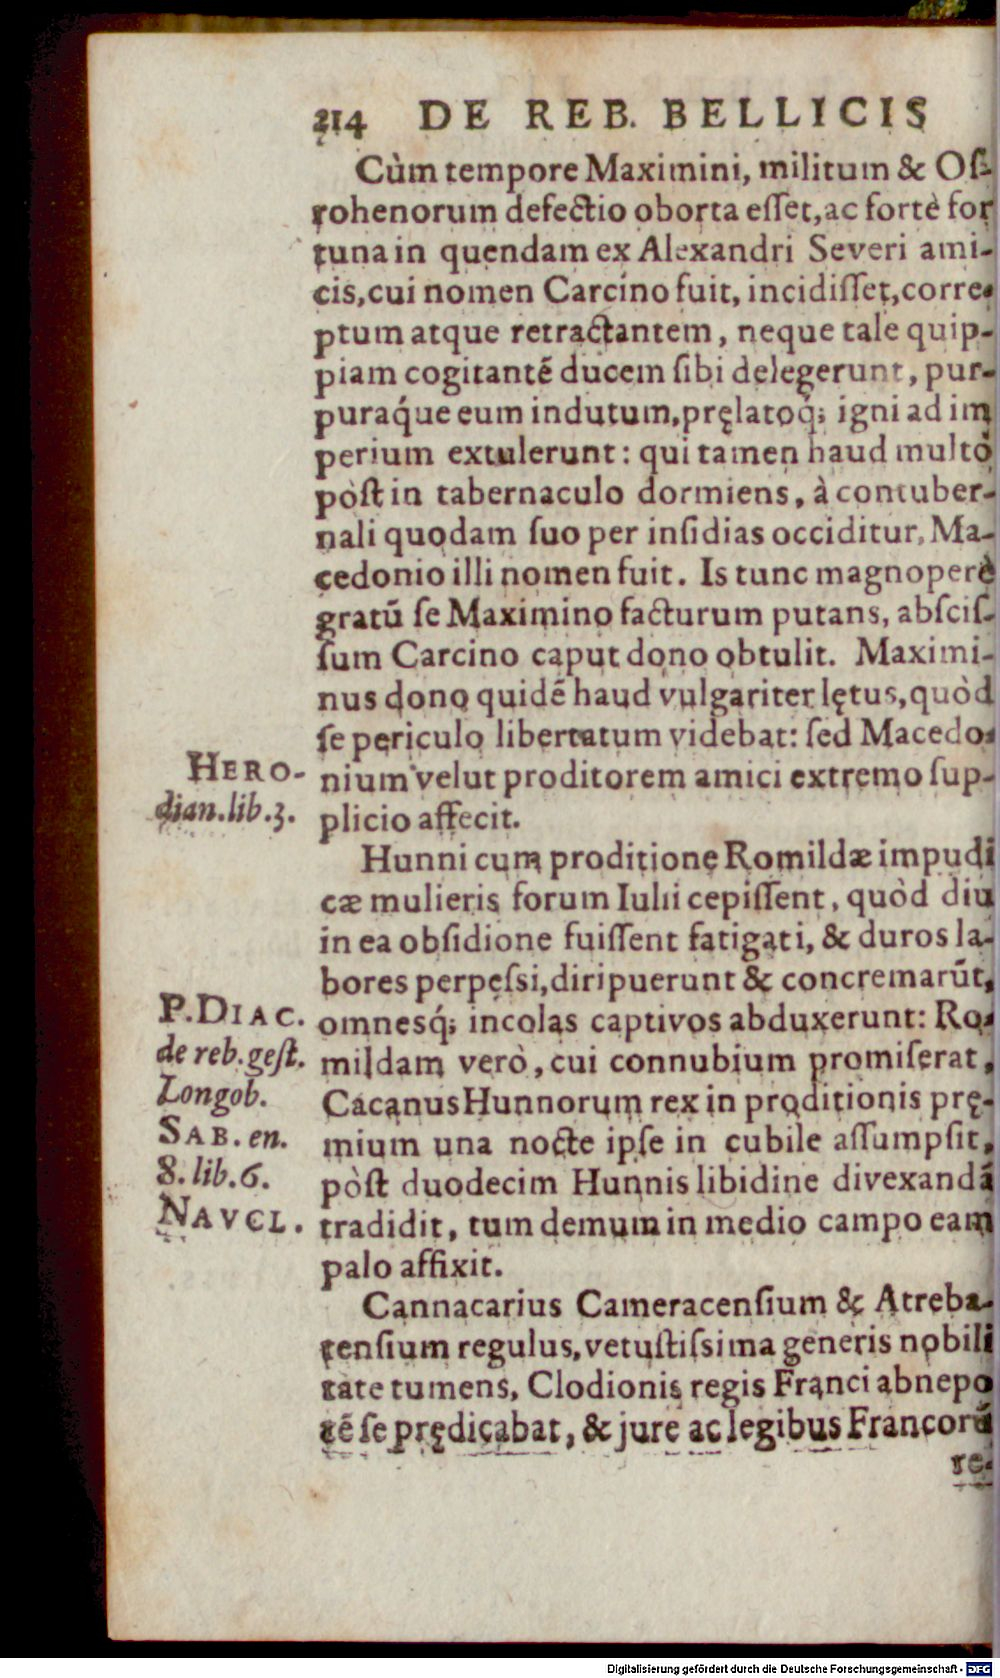 214 DE REB. BELLICIS
Cùm tempore Maximini, militum & Oſ-
rohenorum defectio oborta eſſet, ac fortè for
tuna in quendam ex Alexandri Severi ami-
cis, cui nomen Carcino fuit, incidiſſet, corre-
ptum atque retractantem, neque tale quip-
piam cogitantē ducem ſibi delegerunt, pur-
puraq́ue eum indutum, pręlatoq́; igni ad im
perium extulerunt: qui tamen haud multò
pòſt in tabernaculo dormiens, à contuber-
nali quodam ſuo per inſidias occiditur, Ma-
cedonio illi nomen fuit. Is tunc magnoperè
gratū ſe Maximino facturum putans, abſciſ-
ſum Carcino caput dono obtulit. Maximi-
nus dono quidē haud vulgariter lętus, quòd
ſe periculo libertatum videbat: ſed Macedo-
HERO-
dian. lib. 3.
nium velut proditorem amici extremo ſup-
plicio affecit.
Hunni cum proditione Romildæ impudi
cæ mulieris forum Iulii cepiſſent, quòd diu
in ea obſidione fuiſſent fatigati, & duros la-
bores perpeſsi, diripuerunt & concremarūt,
P. DIAC.
de reb. geſt.
Longob.
SAB. en.
8. lib. 6.
NAVCL.
omnesq́; incolas captivos abduxerunt: Ro-
mildam verò, cui connubium promiſerat,
Cacanus Hunnorum rex in proditionis prę-
mium una nocte ipſe in cubile aſſumpſit,
pòſt duodecim Hunnis libidine divexandā
tradidit, tum demum in medio campo eam
palo affixit.
Cannacarius Cameracenſium & Atreba-
tenſium regulus, vetuſtiſsima generis nobili
tate tumens, Clodionis regis Franci abnepo
tē ſe prędicabat, & jure ac legibus Francorū
re-
Digitalisierung gefördert durch die Deutsche Forschungsgemeinschaft - DFG